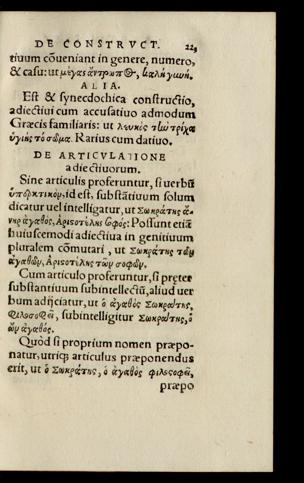 DE CONSTRVCT. 22,
tiuum cõueniant in genere, numero,
& casu: ut μέγας ἄντρωπΘ, καλὴ γωνή.
ALIA.
Est & synecdochica constructio,
adiectiui cum accusatiuo admodum
Græcis familiaris: ut λευκὸς τὼ τρίχα
ὑγιὴς τὸ σῶμα. Rarius cum datiuo.
DE ARTICVLATIONE
adiectiuorum.
Sine articulis proferuntur, si uerbũ
ὑπαρκτικὸν, id est, substãtiuum solum
dicatur uel intelligatur, ut Σωκράτης ἀ-
νὴρ ἀγαθὸς, Ἀρισοτέλης σοφός: Possunt etiã
huiuscemodi adiectiua in genitiuum
pluralem cõmutari, ut Σωκράτης τῶν
ἀγαθῶν, Ἀρισοτέλης τῶν σοφῶν.
Cum articulo proferuntur, si præter
substantiuum subintellectũ, aliud uer
bum adijciatur, ut ὁ ἀγαθὸς Σωκράτης,
φιλοσοφεῖ, subintelligitur Σωκράτης, ὁ
ὢν ἀγαθός.
Quòd si proprium nomen præpo-
natur, utriqȝ articulus præponendus
erit, ut ὁ Σωκράτης, ὁ ἀγαθὸς φιλοσοφεῖ,
præpo